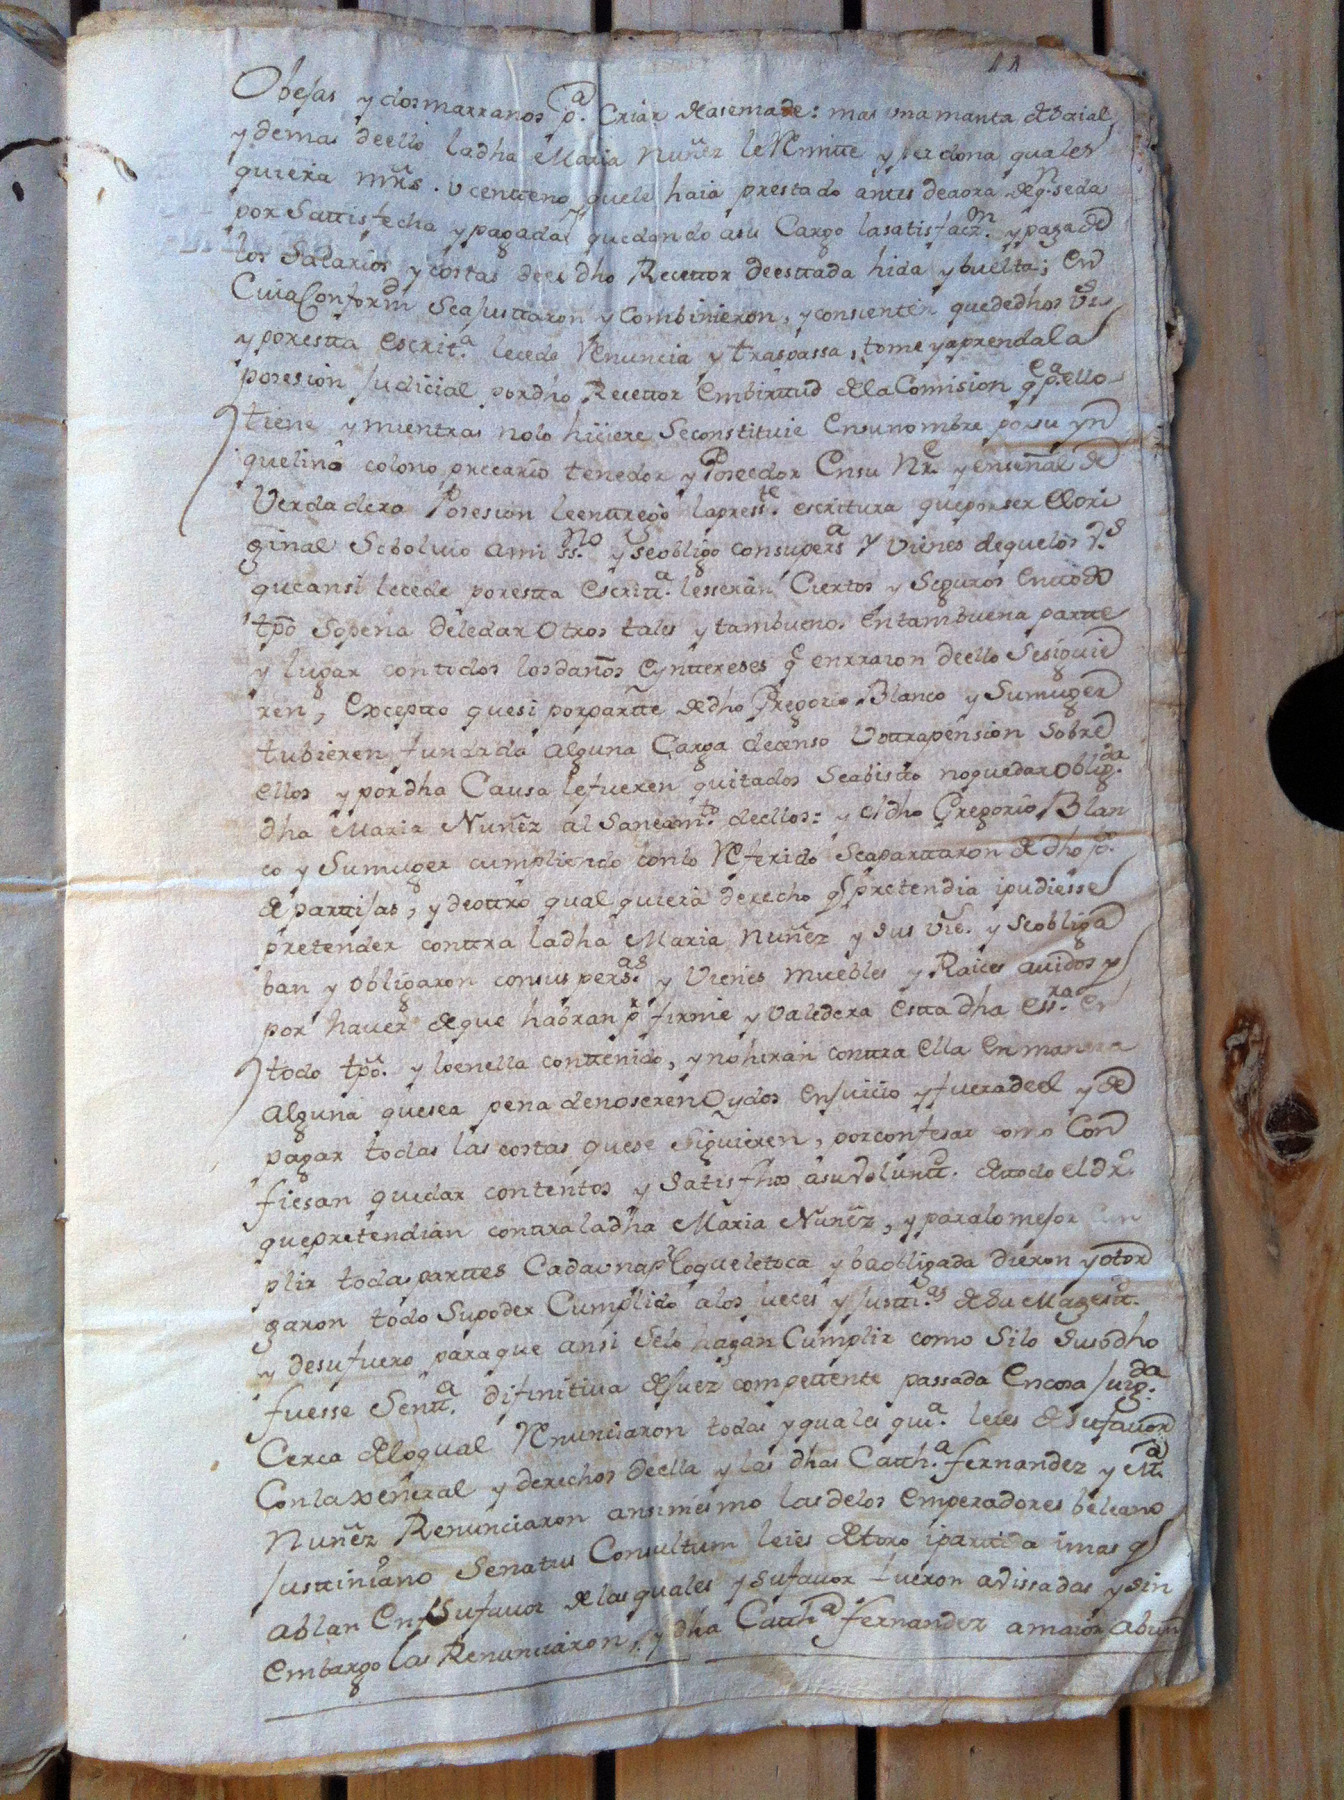 11
Obejas y dos marranos pª. Criar de asemade: mas una manta de Saial
y demas deello ladha Maria Nuñez le Remitte y perdona quales
quiera mrs. u centteno quele haia prestado antes deaora deqe. seda
por Sattisfecha y pagada, quedando asu Cargo lasatisfacn. y paga de
los Salarios y costas deel dho Recettor deesttada hida y buelta; en
Cuia Conformd Seajusttaron y Combinieron, y consienten quededhos Vs.
y poresta escritª. lecede Renuncia y traspassa, tome y aprenda la
posesion Judicial pordho Recettor Embirttud de la Comision qe pª. ello
tiene y mientras nolo hiziere Seconstituie Ensunombre porsu yn
quelino colono preccario tenedor y Poseedor Ensu Ne. y enseñal de
Verdadera Posesion leenttrego lapreste. escritura quepor ser el ori
ginal Sebolvio ami ssno. y seobligo consupersª y Vienes dequelos Vs.
queansi lecede poresta Escrittª. lesseran Ciertos y Seguros enttodo
tpo Sopena deledar Otros tales y tambuenos Entambuena partte
y lugar contodos losdaños eynttereses qe enrrazon deello Sesiguie
ren, Exceptto quesi porpartte de dho Gregorio Blanco y Sumuger
tubieren fundada alguna Carga decenso Uottrapension Sobre
ellos y pordha Causa lefueren quitados Seabistto noquedar obligda.
dha Maria Nuñez al Saneamto. deellos: y el dho Gregorio Blan
co y Sumuger cumpliendo conlo Referido Seaparttaron de dho po.
de parttijas, y deottro qualquiera derecho qe pretendia ipudiesse
pretender conttra ladha Maria Nuñez y sus Vies. y Seobliga
ban y obligaron consus persas. y Vienes muebles y Raices auidos y
por hauer deque habran pr firme y valedera estta dha essra. en
todo tpo. y loenella conttenido, y nohiran conttra ella en manera
alguna quesea pena denoseren Oydos enjuicio y fueradeel y de
pagar todas las costas quese Siguieren, porconfesar como Con
fiesan quedar contentos y Satisfhos asuVoluntt. dettodo el dro.
quepretendian conttraladha Maria Nuñez, y paralomejor Cun
plir todas parttes Cadauna pr loqueletoca y baobligada dieron y otor
garon todo Supoder Cumplido alos Jueces y Justtias de Su Magestt.
y desufuero paraque ansi Selo hagan Cumplir como Silo Susodho
fuesse Senttª. difinitiua deJuez compettente passada Encosa Juzgda.
Cerca delo qual Renunciaron todas y quales quiª. leies desufauor
Conla xeneral y derechos deella y las dhas Catthª. fernandez y Mª.
Nuñez Renunciaron ansimesmo las delos Emperadores beleano
Justtiniano Senatus Consultum leies dettoro i parttida imas qe
ablan En Sufauor delas quales y Sufauor fueron avissadas y sin
embargo las Renunciaron, y dha Catthª fernandez amaior abun